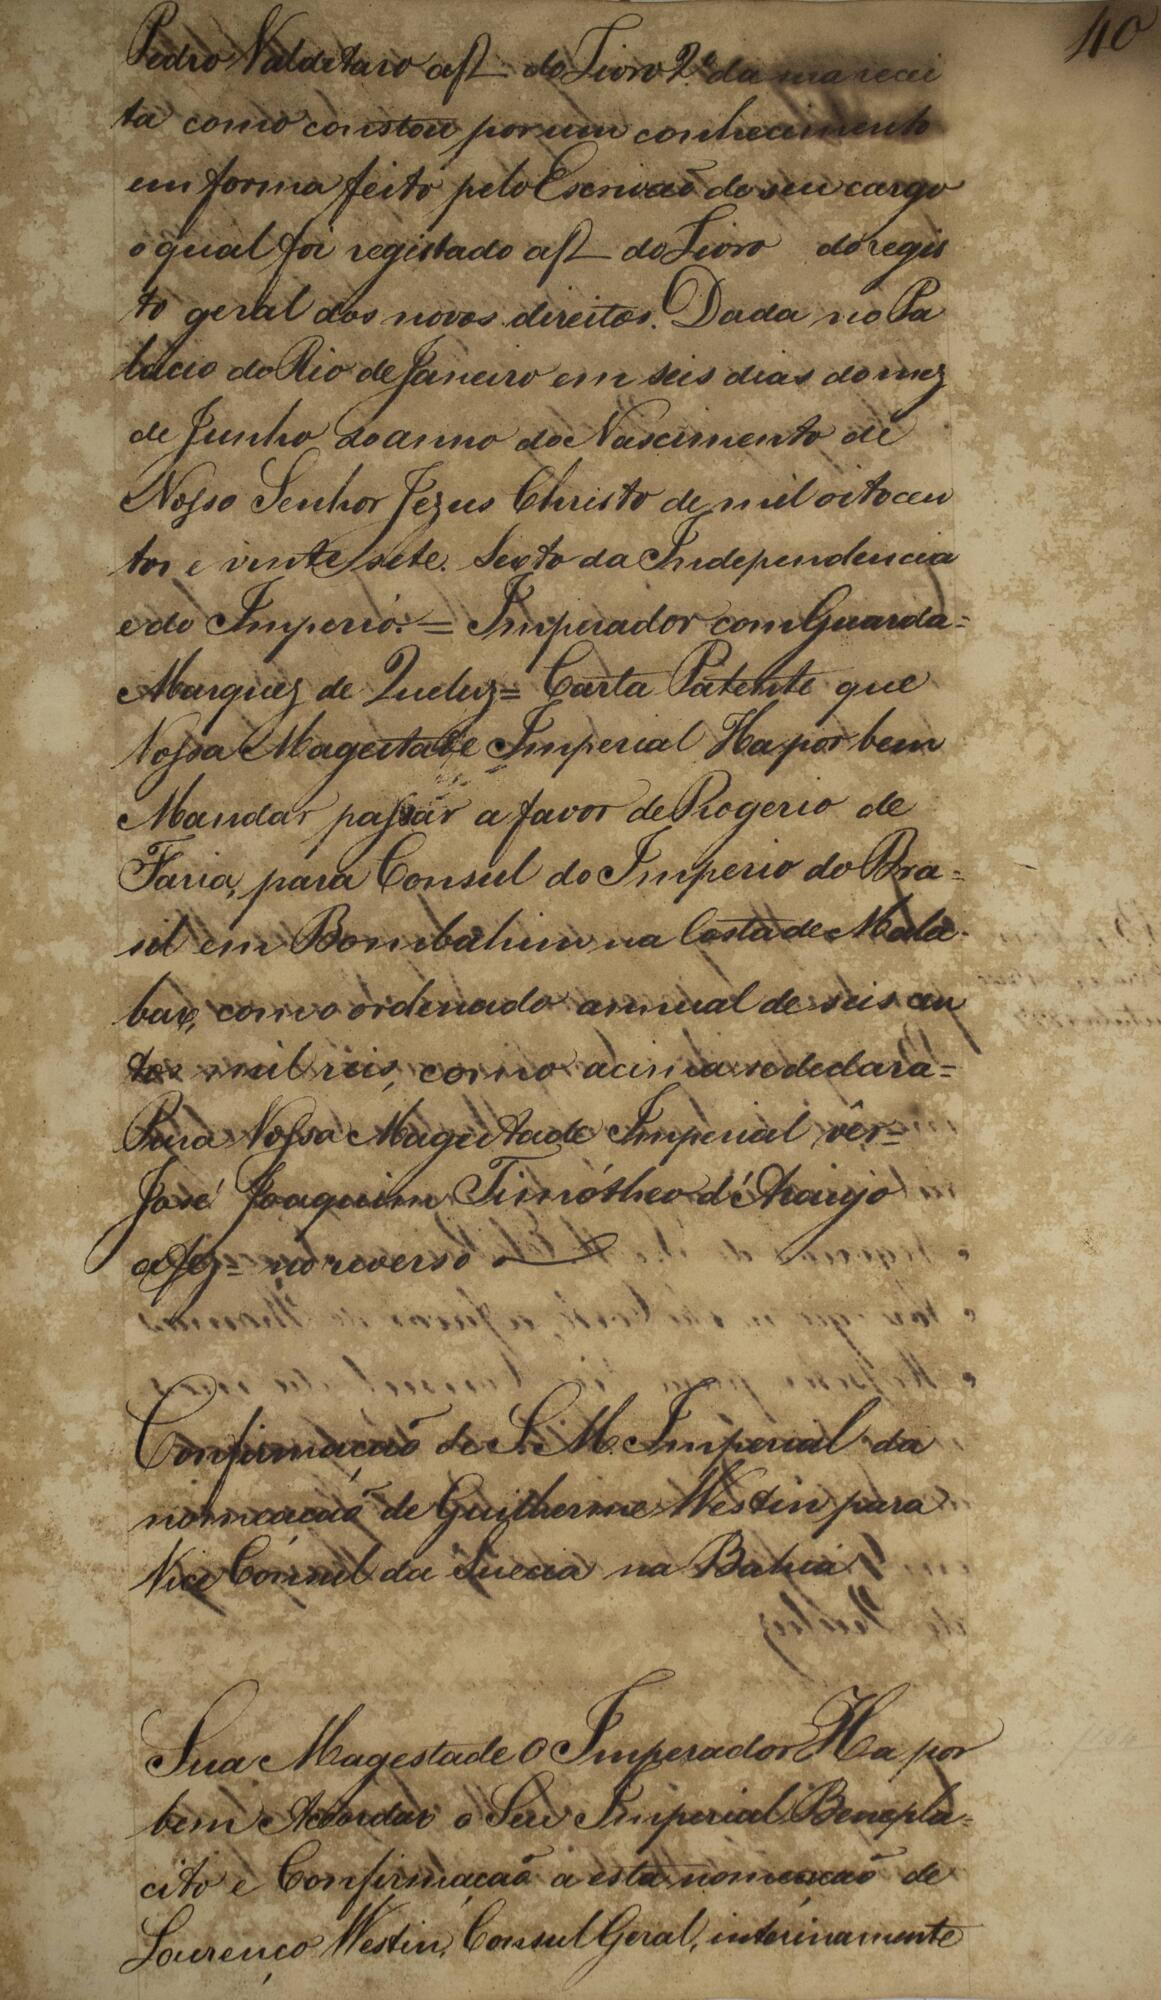 40
Pedro Valdetaro a f do Livro 2º da sua recei
ta como constou por um conhecimento
em forma feito pelo Escrivaõ de seu cargo
o qual foi registado a f do Livro do regis
to geral dos novos direitos. Dada no Pa
lacio do Rio de Janeiro em seis dias do mez
de Junho do anno do Nascimento de
Nosso Senhor Jezus Christo de mil oitocen
tos e vinte sete. Sexto da Independencia
e do Imperio. = Imperador com Guarda =
Marquez de Queluz = Carta Patente que
Vossa Magestade Imperial Ha por bem
Mandar passar a favor de Rogerio de
Faria, para Consul do Imperio do Bra=
sil em Bombahim na Costa de Mala=
bar, com o ordenado annual de seis cen
tos mil reis, como acima se declara =
Para Vossa Magestade Imperial vêr =
José Joaquim Timótheo d'Araujo
a fez = no reverso
Confirmaçaõ de S. M. Imperial da
nomeaçaõ de Guilherme Westin para
Vice Consul da Suecia na Bahia
Sua Magestade O Imperador Ha por
bem Acordar o Seu Imperial Benepla=
cito e Confirmaçaõ a esta nomeaçaõ de
Lourenço Westin, Consul Geral, interinamente